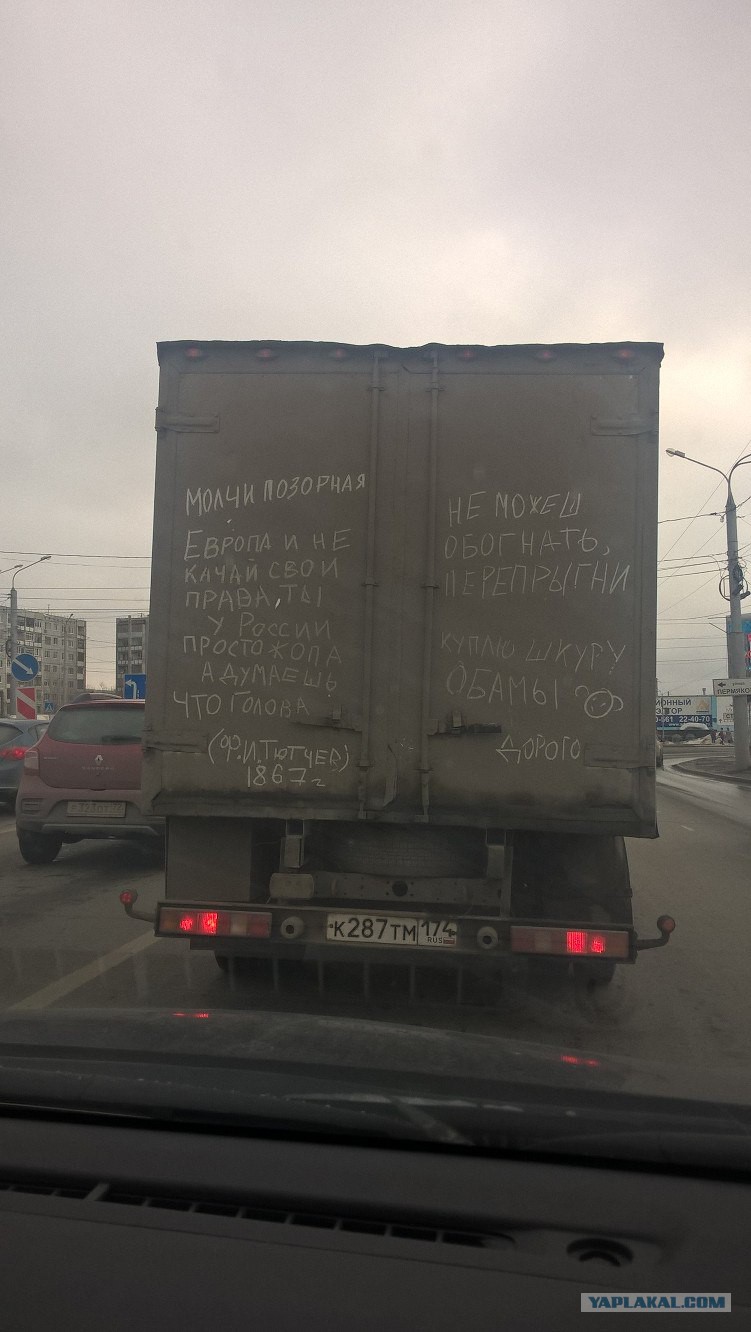 МОЛЧИ ПОЗОРНАЯ
ЕВРОПА И НЕ
КАЧАЙ СВОИ
ПРАВА, ТЫ
У РОССИИ
ПРОСТО ЖОПА
А ДУМАЕШЬ
ЧТО ГОЛОВА
(Ф.И.ТЮТЧЕВ)
1867г
НЕ МОЖЕШ
ОБОГНАТЬ,
ПЕРЕПРЫГНИ
КУПЛЮ ШКУРУ
ОБАМЫ
ДОРОГО
К287ТМ 174
RUS
22-40-70
YAPLAKAL.COM